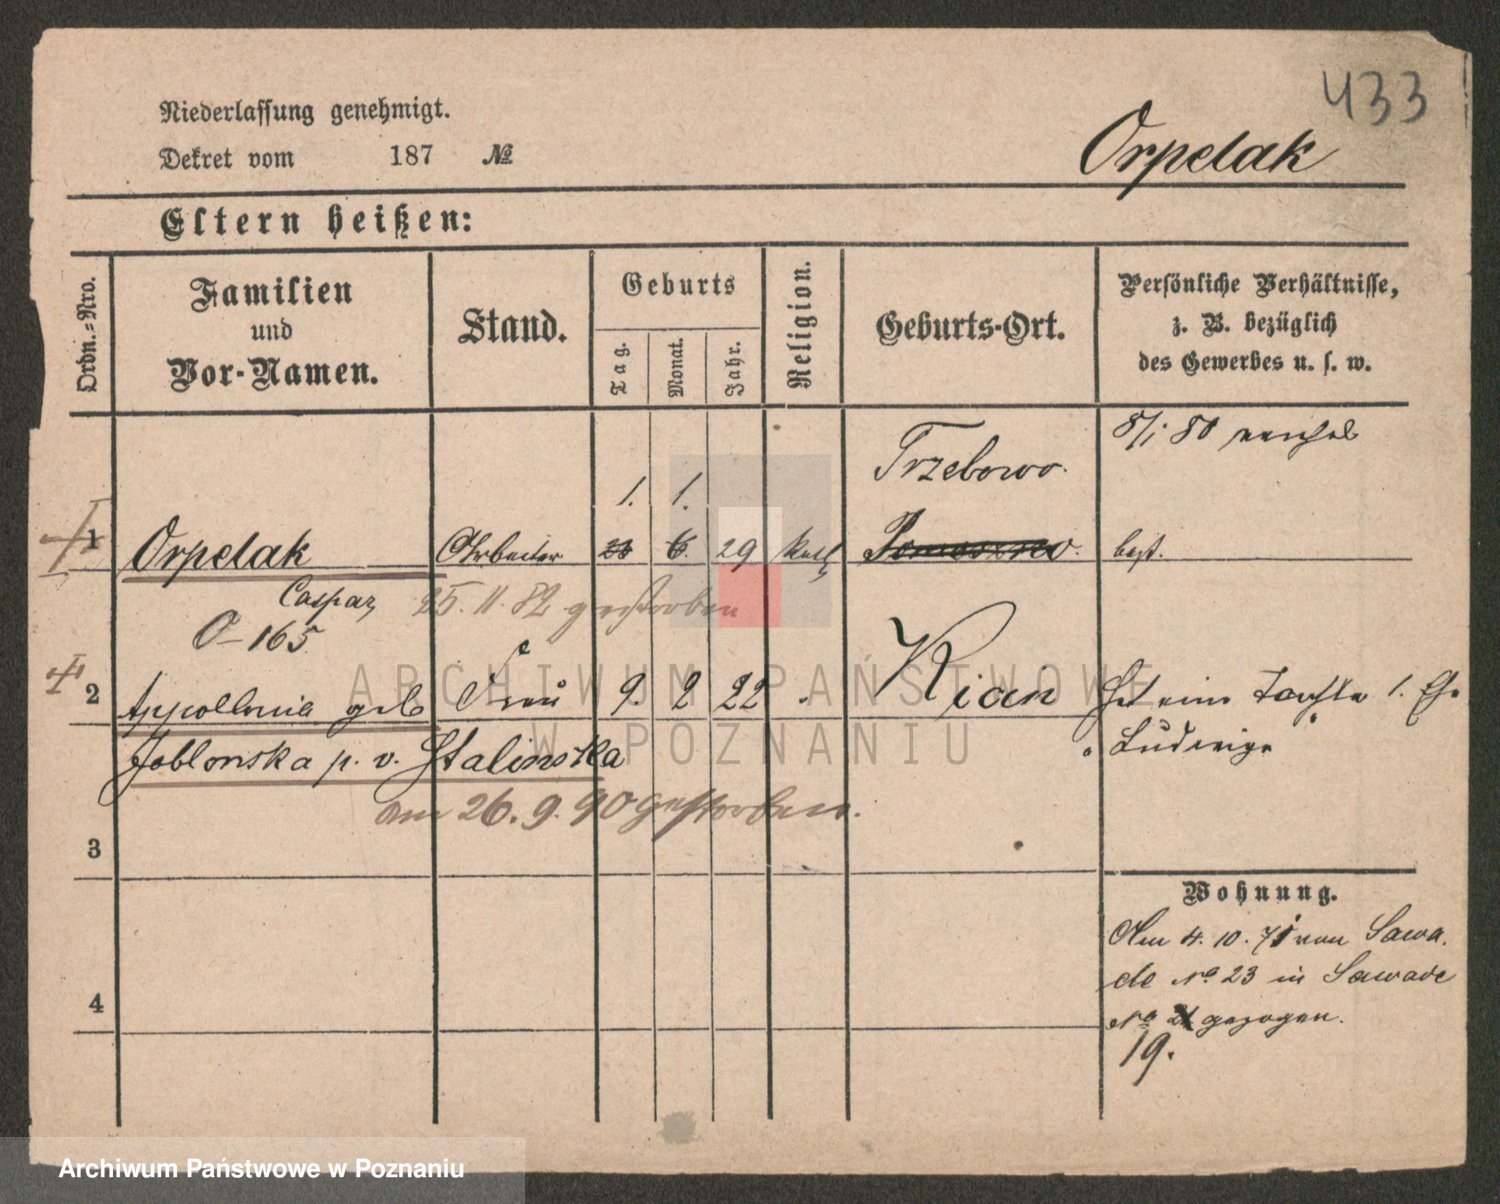 433
Niederlassung genehmigt.
Orpelak
Dekret vom 187 №
Eltern heißen:
Ordn.=Nro.
Familien
und
Vor-Namen.
Stand.
Geburts
Tag.
Monat.
Jahr.
Religion.
Geburts-Ort.
Persönliche Verhältnisse,
z. B. bezüglich
des Gewerbes u. s. w.
8/1 80
Trzebowo.
1. 1.
1 Orpelak Arbeiter 6. 29 kath Pomoszno.
Caspar
25. 11. 82 gestorben
O-165
2 Appollonia geb Frau 9. 2 22 Kian Hat eine Tochter 1. Eh.
Jablonska p. v. Stalinska
Ludwiga
am 26. 9. 90 gestorben.
3
Wohnung.
Am 4. 10. 71 von Sawa.
de No 23 in Sawade
4
No gezogen.
19.
ARCHIWUM PAŃSTWOWE
W POZNANIU
Archiwum Państwowe w Poznaniu